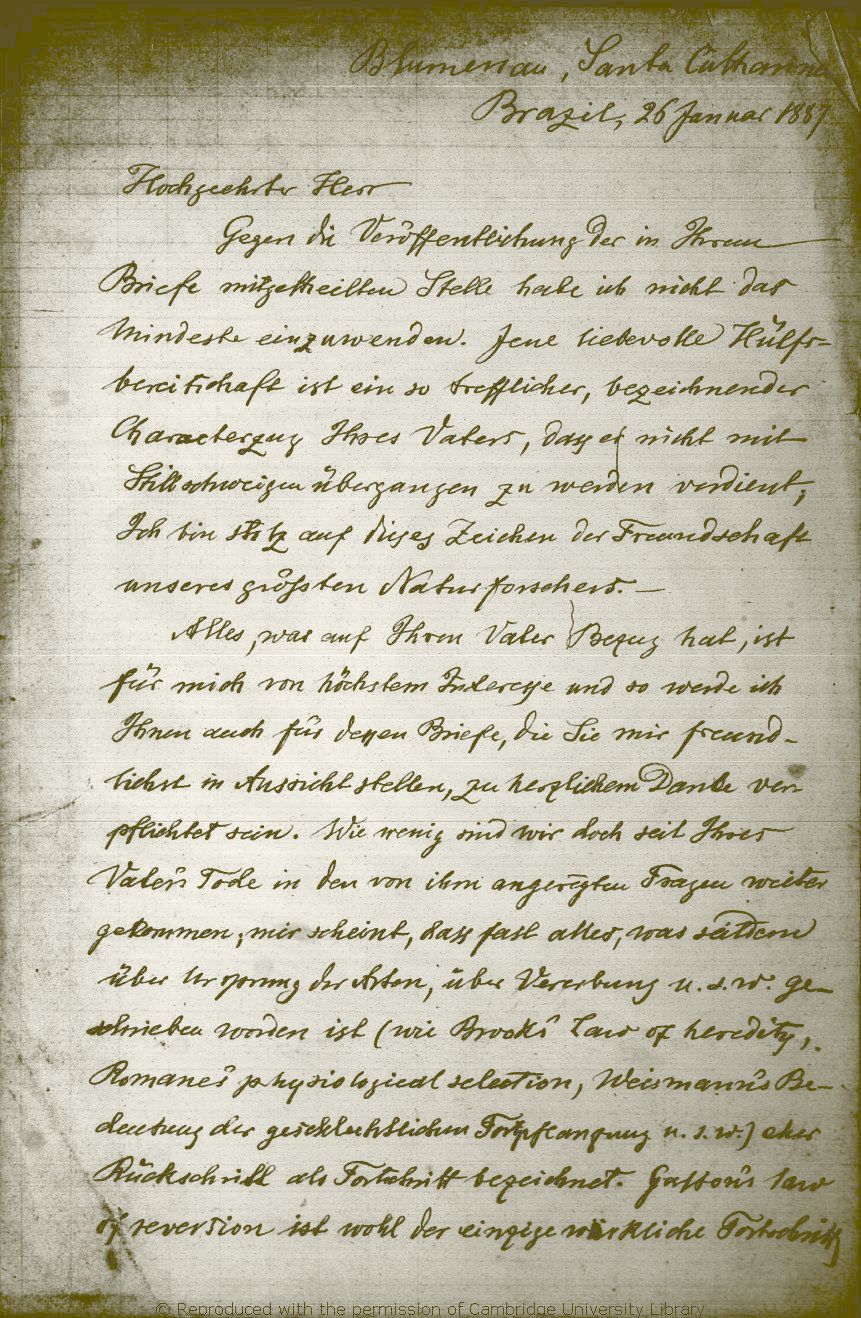 Blumenau, Santa Catharina
Brazil, 26 Januar 1887
Hochgeehrter Herr
Gegen die Veröffentlichung der in Ihrem
Briefe mitgetheilten Stelle habe ich nicht das
Mindeste einzuwenden. Jene liebevolle Hülfs-
bereitschaft ist ein so trefflicher, bezeichnender
Characterzug Ihres Vaters, dass er nicht mit
Stillschweigen übergangen zu werden verdient;
Ich bin stolz auf dieses Zeichen der Freundschaft
unseres grössten Naturforschers. —
Alles, was auf Ihren Vater Bezug hat, ist
für mich von höchstem Interesse und so werde ich
Ihnen auch für dessen Briefe, die Sie mir freund-
lichst in Aussicht stellen, zu herzlichem Danke ver-
pflichtet sein. Wie wenig sind wir doch seit Ihres
Vaters Tode in den von ihm angeregten Fragen weiter
gekommen; mir scheint, dass fast alles, was seitdem
über Ursprung der Arten, über Vererbung u. s. w. ge-
schrieben worden ist (wie Brooks' law of heredity,
Romanes' physiological selection, Weismann's Be-
deutung der geschlechtlichen Fortpflanzung u. s. w.) eher
Rückschritt als Fortschritt bezeichnet. Galton's law
of reversion ist wohl der einzige wirkliche Fortschritt
© Reproduced with the permission of Cambridge University Library